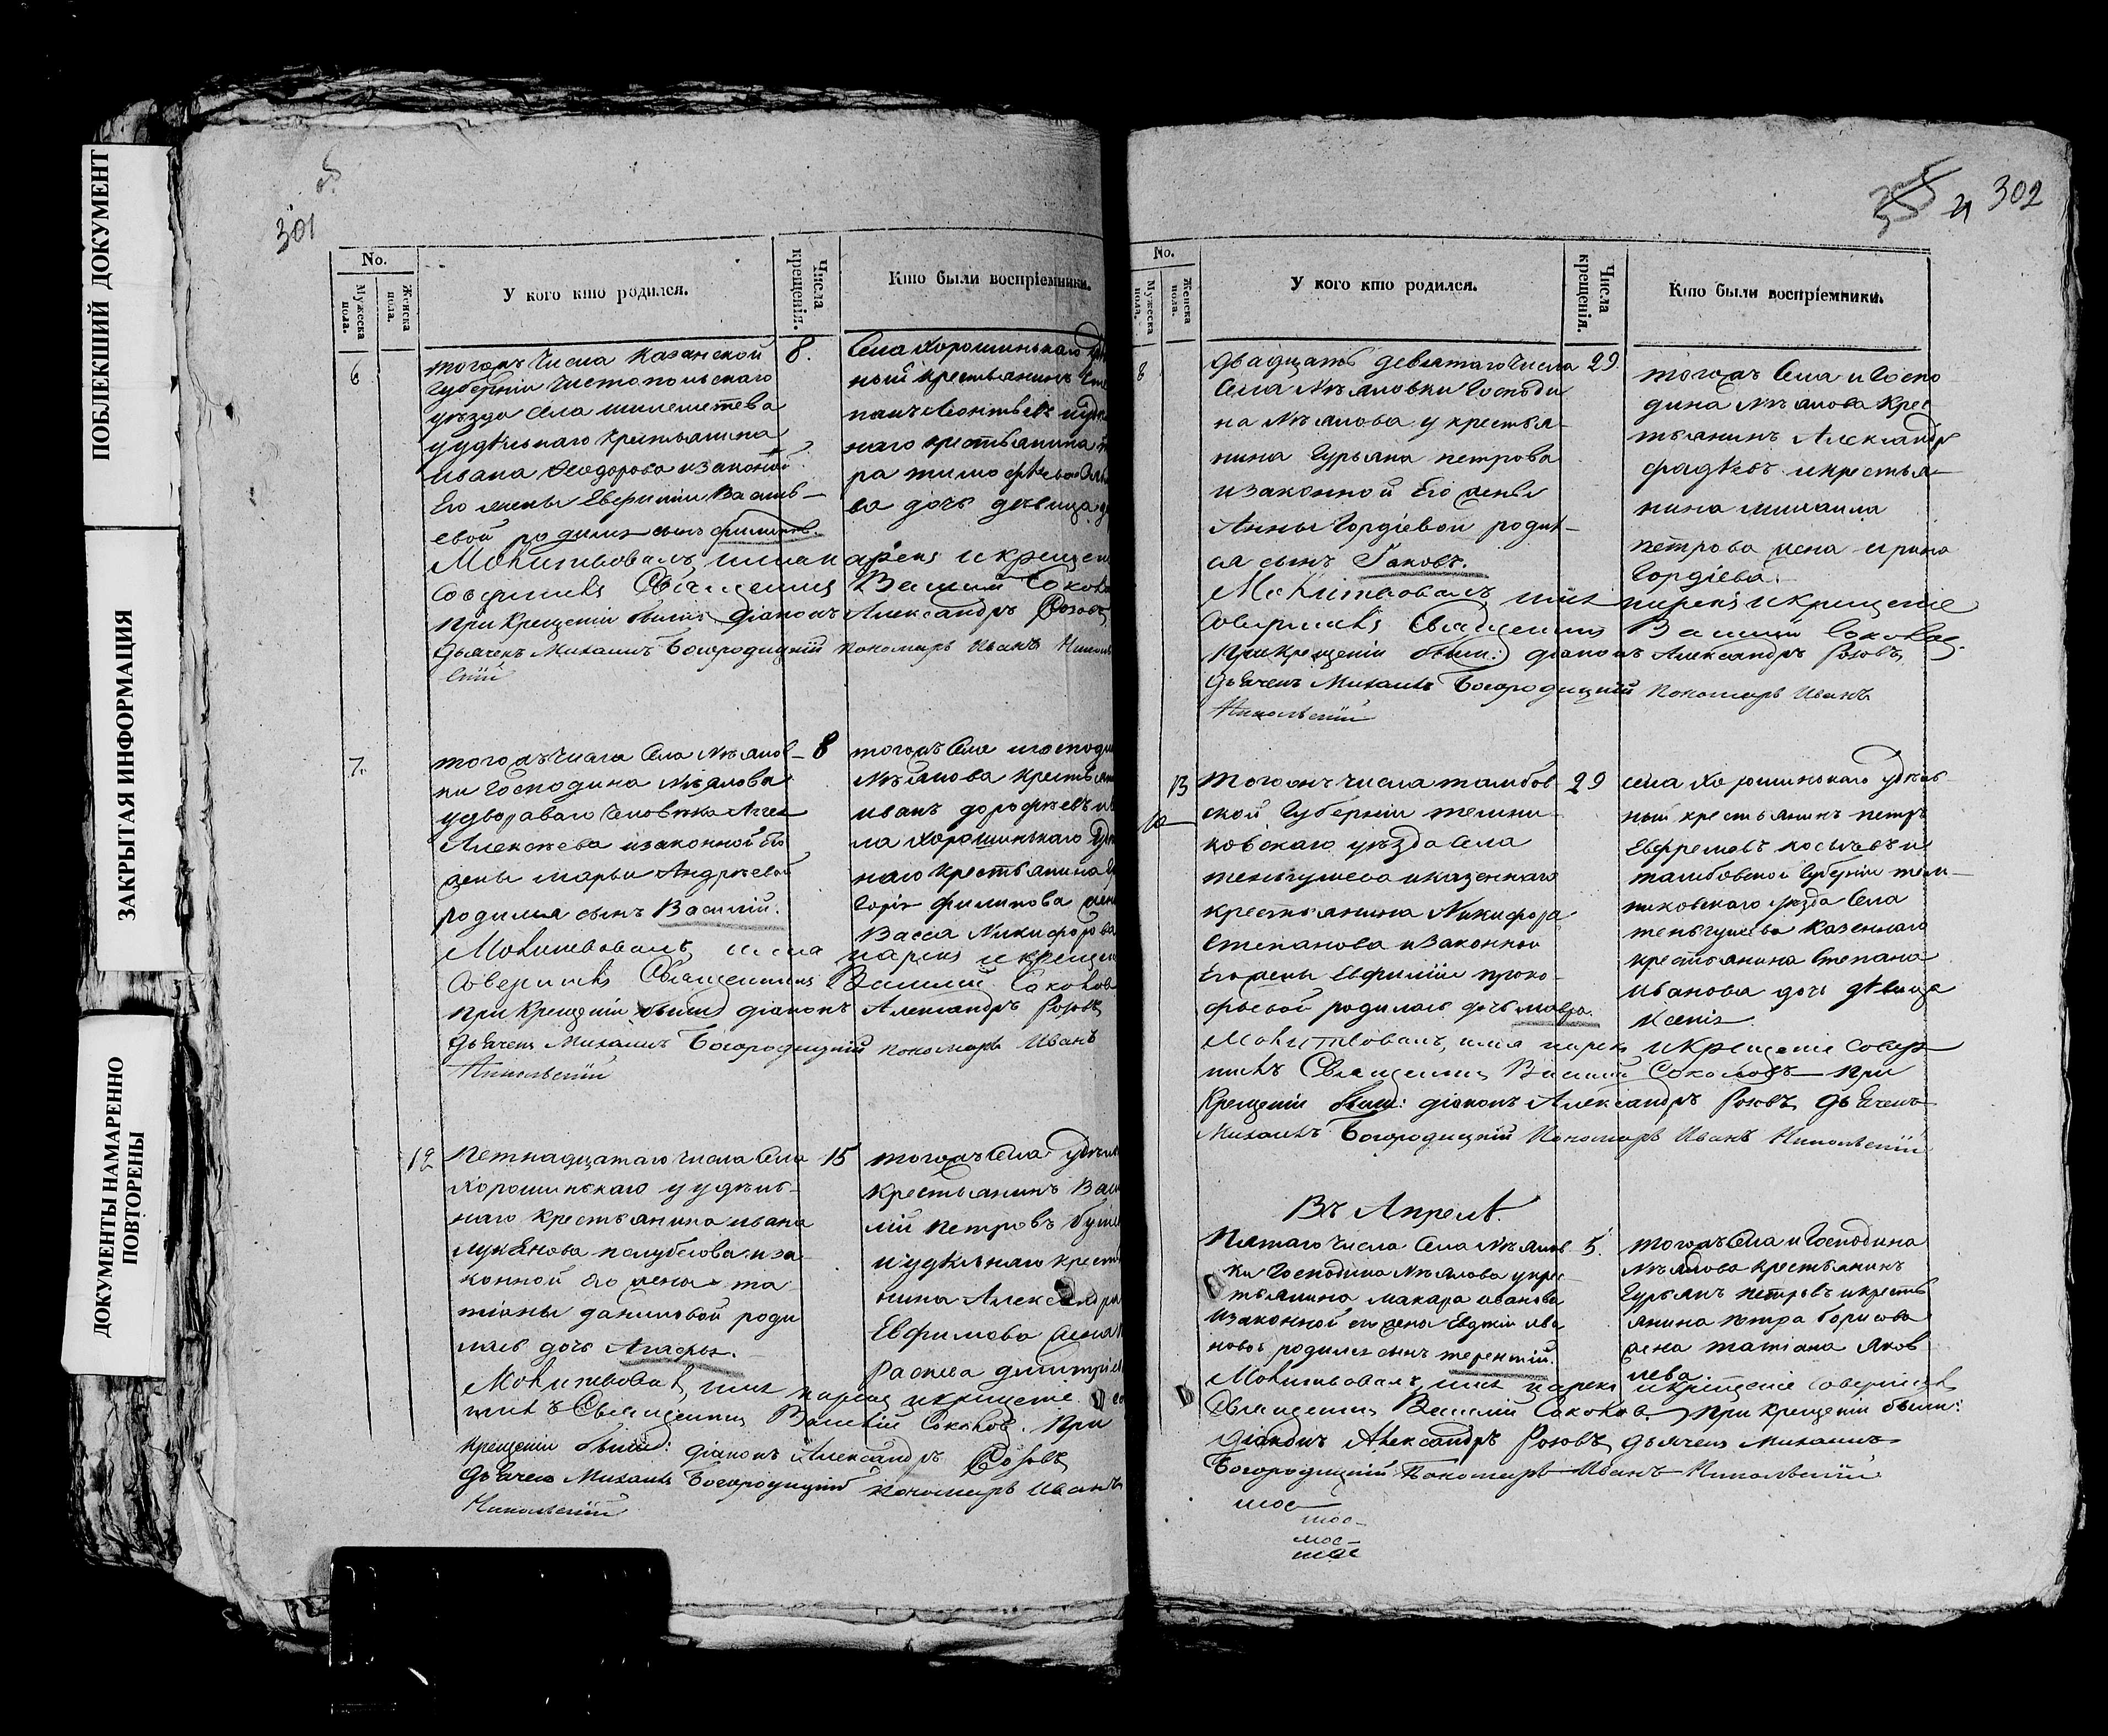 ПОБЛЕКШИЙ ДОКУМЕНТ
ЗАКРЫТАЯ ИНФОРМАЦИЯ
ДОКУМЕНТЫ НАМАРЕННО
ПОВТОРЕНЫ
301
No.
Мужеска пола.
Женска пола.
У кого кто родился.
Числа крещенія.
Кто были воспріемники.
6
тогожъ числа Казанской
Губерніи Чистопольскаго
уѣзда села
у удѣльнаго крестьянина
Ивана Ѳеодорова и законной
Его жены Евфиміи Василь-
евой родился сынъ
8.
Села Хорошинькаго
ный крестьянинъ
наго крестьянина
ва дочь дѣвица
Молитвовалъ, имя нарекъ и крещен
Совершилъ Священникъ Василій Соколо
При Крещеніи были: діаконъ Александръ Розовъ,
Дьячекъ Михаилъ Богородицкій пономарь Иванъ Николь
скій
7.
тогожъ числа Села Мѣялов-
ки Господина Мѣялова
у двороваго человѣка
Алексѣева и законной Его
жены Марьи Андреевой
родился сынъ Василій.
8
тогожъ Села и господи
Мѣялова крестьян
Иванъ Дорофѣевъ и
ла Хорошинькаго
наго крестьянина
горія Филипова жен
Васса Никифорова
Молитвовалъ, имя нарекъ и крещен
Совершилъ Священникъ Василій Соколов
При Крещеніи были: діаконъ Александръ Розовъ
Дьячекъ Михаилъ Богородицкій пономарь Иванъ
Никольскій
12
Петнадцатаго числа Села
Хорошинькаго у удѣль-
наго крестьянина Ивана
Лукянова Полубелова и за-
конной его жены Та-
тіаны Даниловой роди
лась дочь Агафья.
15
тогожъ Села удѣльн
крестьянинъ Васи
лій Петровъ
и удѣльнаго крест
нина Александра
Евфимова жена
Молитвовалъ, имя нарекъ и крещеніе со
шилъ Священникъ Василій Соколовъ. При
Крещеніи были: діаконъ Александръ Розовъ,
Дьячекъ Михаилъ Богородицкій пономарь Иванъ
Никольскій
21 302
No.
Мужеска пола.
Женска пола.
У кого кто родился.
Числа крещенія.
Кто были воспріемники.
8
двадцать девятаго числа
Села Мѣяловки Господи
на Мѣялова у крестья-
нина Гурьяна Петрова
и законной Его жены
Анны Гордіевой родил-
ся сынъ Іаковъ.
29
тогожъ Села и Госпо
дина Мѣялова крес
тьянинъ Александръ
Фадѣевъ и крестья-
нина Михаила
Петрова жена Ирина
Гордіева.
Молитвовалъ, имя нарекъ и крещеніе
Совершилъ Священникъ Василій Соколовъ.
При крещеніи были: діаконъ Александръ Розовъ,
Дьячекъ Михаилъ Богородицкій пономарь Иванъ
Никольскій
13
тогожъ числа Тамбов-
ской Губерніи Темни-
ковскаго уѣзда Села
Теньгушева и казеннаго
крестьянина Никифора
Степанова и законной
Его жены Евфиміи Проко-
фьевой родилась дочь Мавра.
29
Села Хорошинькаго удѣль
ный крестьянинъ Петръ
Ефремовъ Косычевъ и
Тамбовской Губерніи Тем-
никовскаго уѣзда Села
Теньгушева казеннаго
крестьянина Степана
Иванова дочь дѣвица
Ксенія.
Молитвовалъ, имя нарекъ и крещеніе совер
шилъ Священникъ Василій Соколовъ — При
Крещеніи были: діаконъ Александръ Розовъ, Дьячекъ
Михаилъ Богородицкій Пономарь Иванъ Никольскій
Въ Апрелѣ.
Пятаго числа Села Мѣялов
ки Господина Мѣялова у крес-
тьянина Макара Иванова
и законной его жены Евдокіи Ива
новой родился сынъ Терентій.
5.
тогожъ Села и Господина
Мѣялова крестьянинъ
Гурьянъ Петровъ и кресть
янина Петра Борисова
жена Татіана Яков
лева.
Молитвовалъ, имя нарекъ и крещеніе совершилъ
Священникъ Василій Соколовъ. При Крещеніи были:
діаконъ Александръ Розовъ, Дьячекъ Михаилъ
Богородицкій Пономарь Иванъ Никольскій